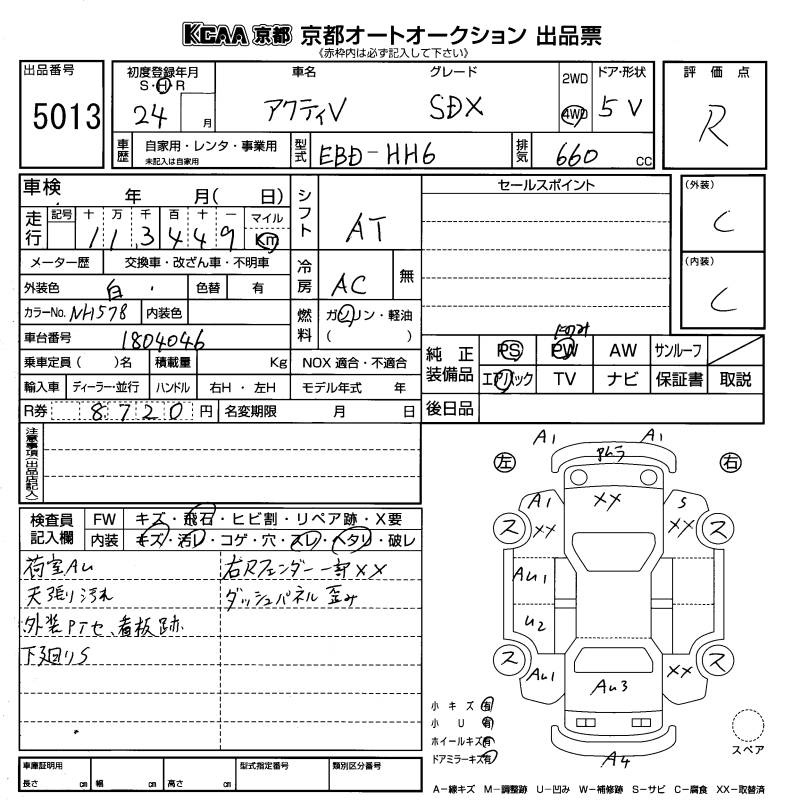 KCAA 京都 京都オートオークション 出品票
《赤枠内は必ず記入して下さい》
出品番号
5013
初度登録年月
S・H・R
24 月
車名
アクティV
グレード
SDX
2WD
4WD
ドア・形状
5 V
評価点
R
車歴
自家用・レンタ・事業用
未記入は自家用
型式
EBD-HH6
排気
660 cc
車検 年 月( 日)
走行
記号 十 万 千 百 十 一 マイル
1 1 3 4 4 9 Km
メーター歴 交換車・改ざん車・不明車
外装色 白 色替 有
カラーNo. NH578 内装色
車台番号 1804046
乗車定員( )名 積載量 Kg
輸入車 ディーラー・並行 ハンドル 右H・左H
R券 8720円 名変期限 月 日
シフト AT
冷房 AC 無
燃料 ガソリン・軽油
( )
NOX 適合・不適合
モデル年式 年
セールスポイント
(外装)
C
(内装)
C
純正装備品
PS PW AW サンルーフ
エアバック TV ナビ 保証書 取説
後日品
注意事項(出品店記入)
検査員記入欄
FW キズ・飛石・ヒビ割・リペア跡・X要
内装 キズ・汚レ・コゲ・穴・スレ・ヘタリ・破レ
荷室AU 右Rフェンダー一部XX
天張り汚れ ダッシュパネル歪み
外装PTセ、看板跡
下廻りS
左 右
A1 A1
XX
A1 XX
S XX
ス ス
AU1
U2
ス ス
AU1
XX
AU3
A4
小キズ有
小U有
ホイールキズ有
ドアミラーキズ有
スペア
車庫証明用
長さ cm 幅 cm 高さ cm
型式指定番号
類別区分番号
A-線キズ M-調整跡 U-凹み W-補修跡 S-サビ C-腐食 XX-取替済